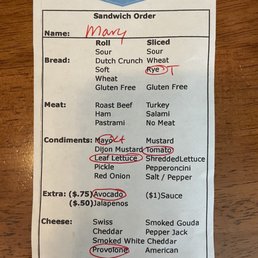 Sandwich Order
Name: Mary
Roll Sliced
Sour Sour
Bread: Dutch Crunch Wheat
Soft Rye T
Wheat
Gluten Free Gluten Free
Meat: Roast Beef Turkey
Ham Salami
Pastrami No Meat
Condiments: Mayo Mustard
Dijon Mustard Tomato
Leaf Lettuce ShreddedLettuce
Pickle Pepperoncini
Red Onion Salt / Pepper
Extra: ($.75) Avocado ($1)Sauce
($.50) Jalapenos
Cheese: Swiss Smoked Gouda
Cheddar Pepper Jack
Smoked White Cheddar
Provolone American